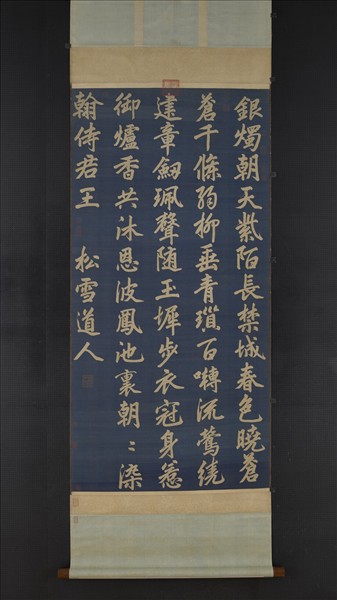 銀燭朝天紫陌長禁城春色曉蒼
蒼千條弱柳垂青瑣百囀流鶯繞
建章劔珮聲随玉墀步衣冠身惹
御爐香共沐恩波鳳池裏朝〻染
翰侍君王 松雪道人